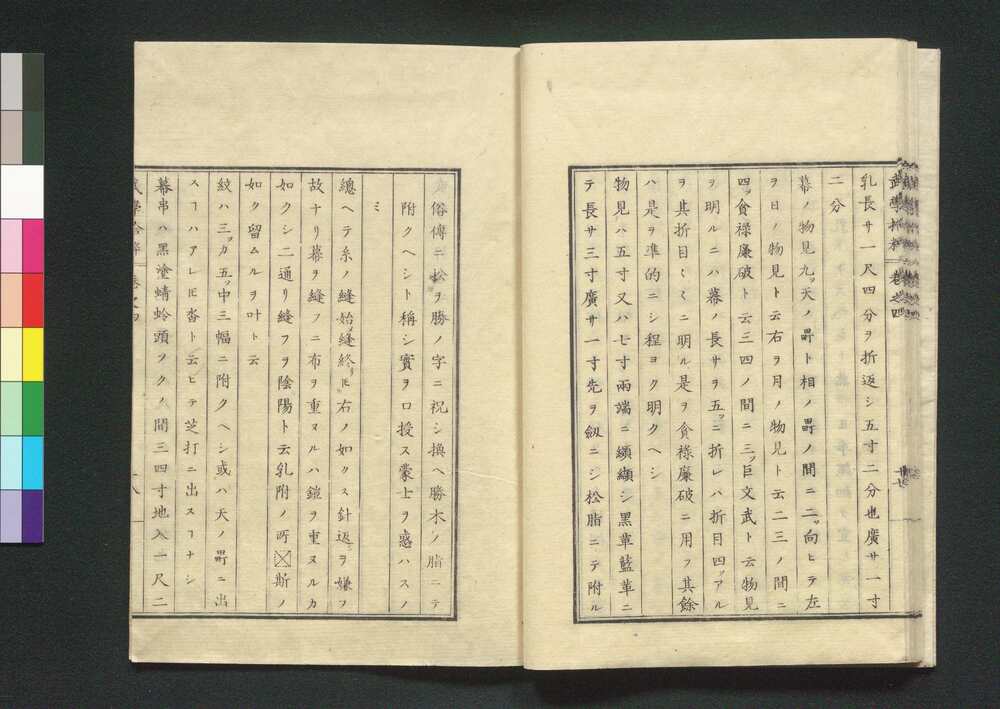 武學拾粹 卷之四
乳長サ一尺四分ヲ折返シ五寸二分也廣サ一寸
二分
幕ノ物見九ッ天ノ㽟ト相ノ㽟ノ間ニ二ッ向ヒテ左
ヲ日ノ物見ト云右ヲ月ノ物見ト云二三ノ間ニ
四ッ貪祿廉破ト云三四ノ間ニ三ッ巨文武ト云物見
ヲ明ルニハ幕ノ長サヲ五ッニ折レハ折目四ッアル
ヲ其折目〱ニ明ル是ヲ貪祿廉破ニ用フ其餘
ハ是ヲ準的ニシ程ヨク明クヘシ
物見ハ五寸又ハ七寸兩端ニ纐纈シ黑革藍革ニ
テ長サ三寸廣サ一寸先ヲ劔ニシ松脂ニテ附ル
俗傳ニ松ヲ勝ノ字ニ祝シ換ヘ勝木ノ脂ニテ
附クヘシト稱シ實ヲロ授ス蒙士ヲ惑ハスノ
ミ
總ヘテ糸ノ縫始メ縫終リ𪜈右ノ如クス針返ヲ嫌フ
故ナリ幕ヲ縫フニ布ヲ重ヌルハ鎧ヲ重ヌルカ
如クシ二通リ縫フヲ陰陽ト云乳附ノ所〼斯ノ
如ク留ムルヲ叶ト云
紋ハ三ッカ五ッ中三幅ニ附クヘシ或ハ天ノ㽟ニ出
スヿハアレ𪜈沓ト云ヒテ芝打ニ出スヿナシ
幕串ハ黑塗蜻蛉頭ノクノ間三四寸地入一尺二